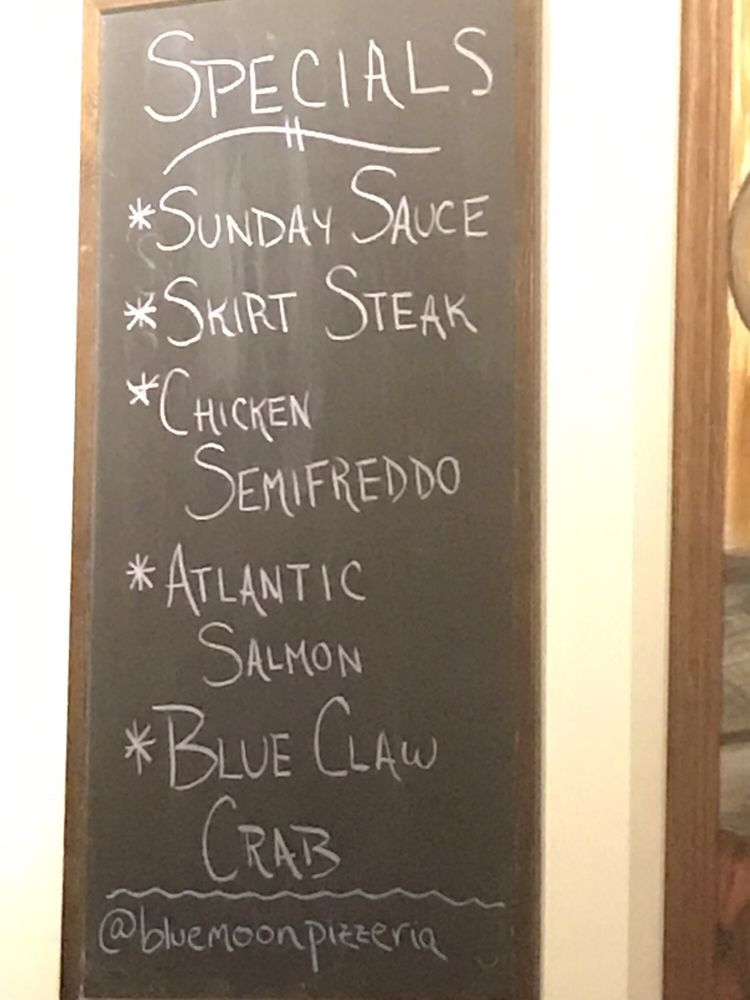 SPECIALS
*SUNDAY SAUCE
*SKIRT STEAK
*CHICKEN
SEMIFREDDO
*ATLANTIC
SALMON
*BLUE CLAW
CRAB
@bluemoonpizzeria